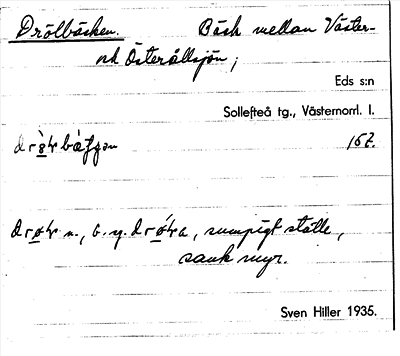 Drölbäcken. Bäck mellan Väster-
och Österållsjön;
Eds s:n
Sollefteå tg., Västernorrl. l.
167.
n., sumpigt ställe,
sank myr.
Sven Hiller 1935.